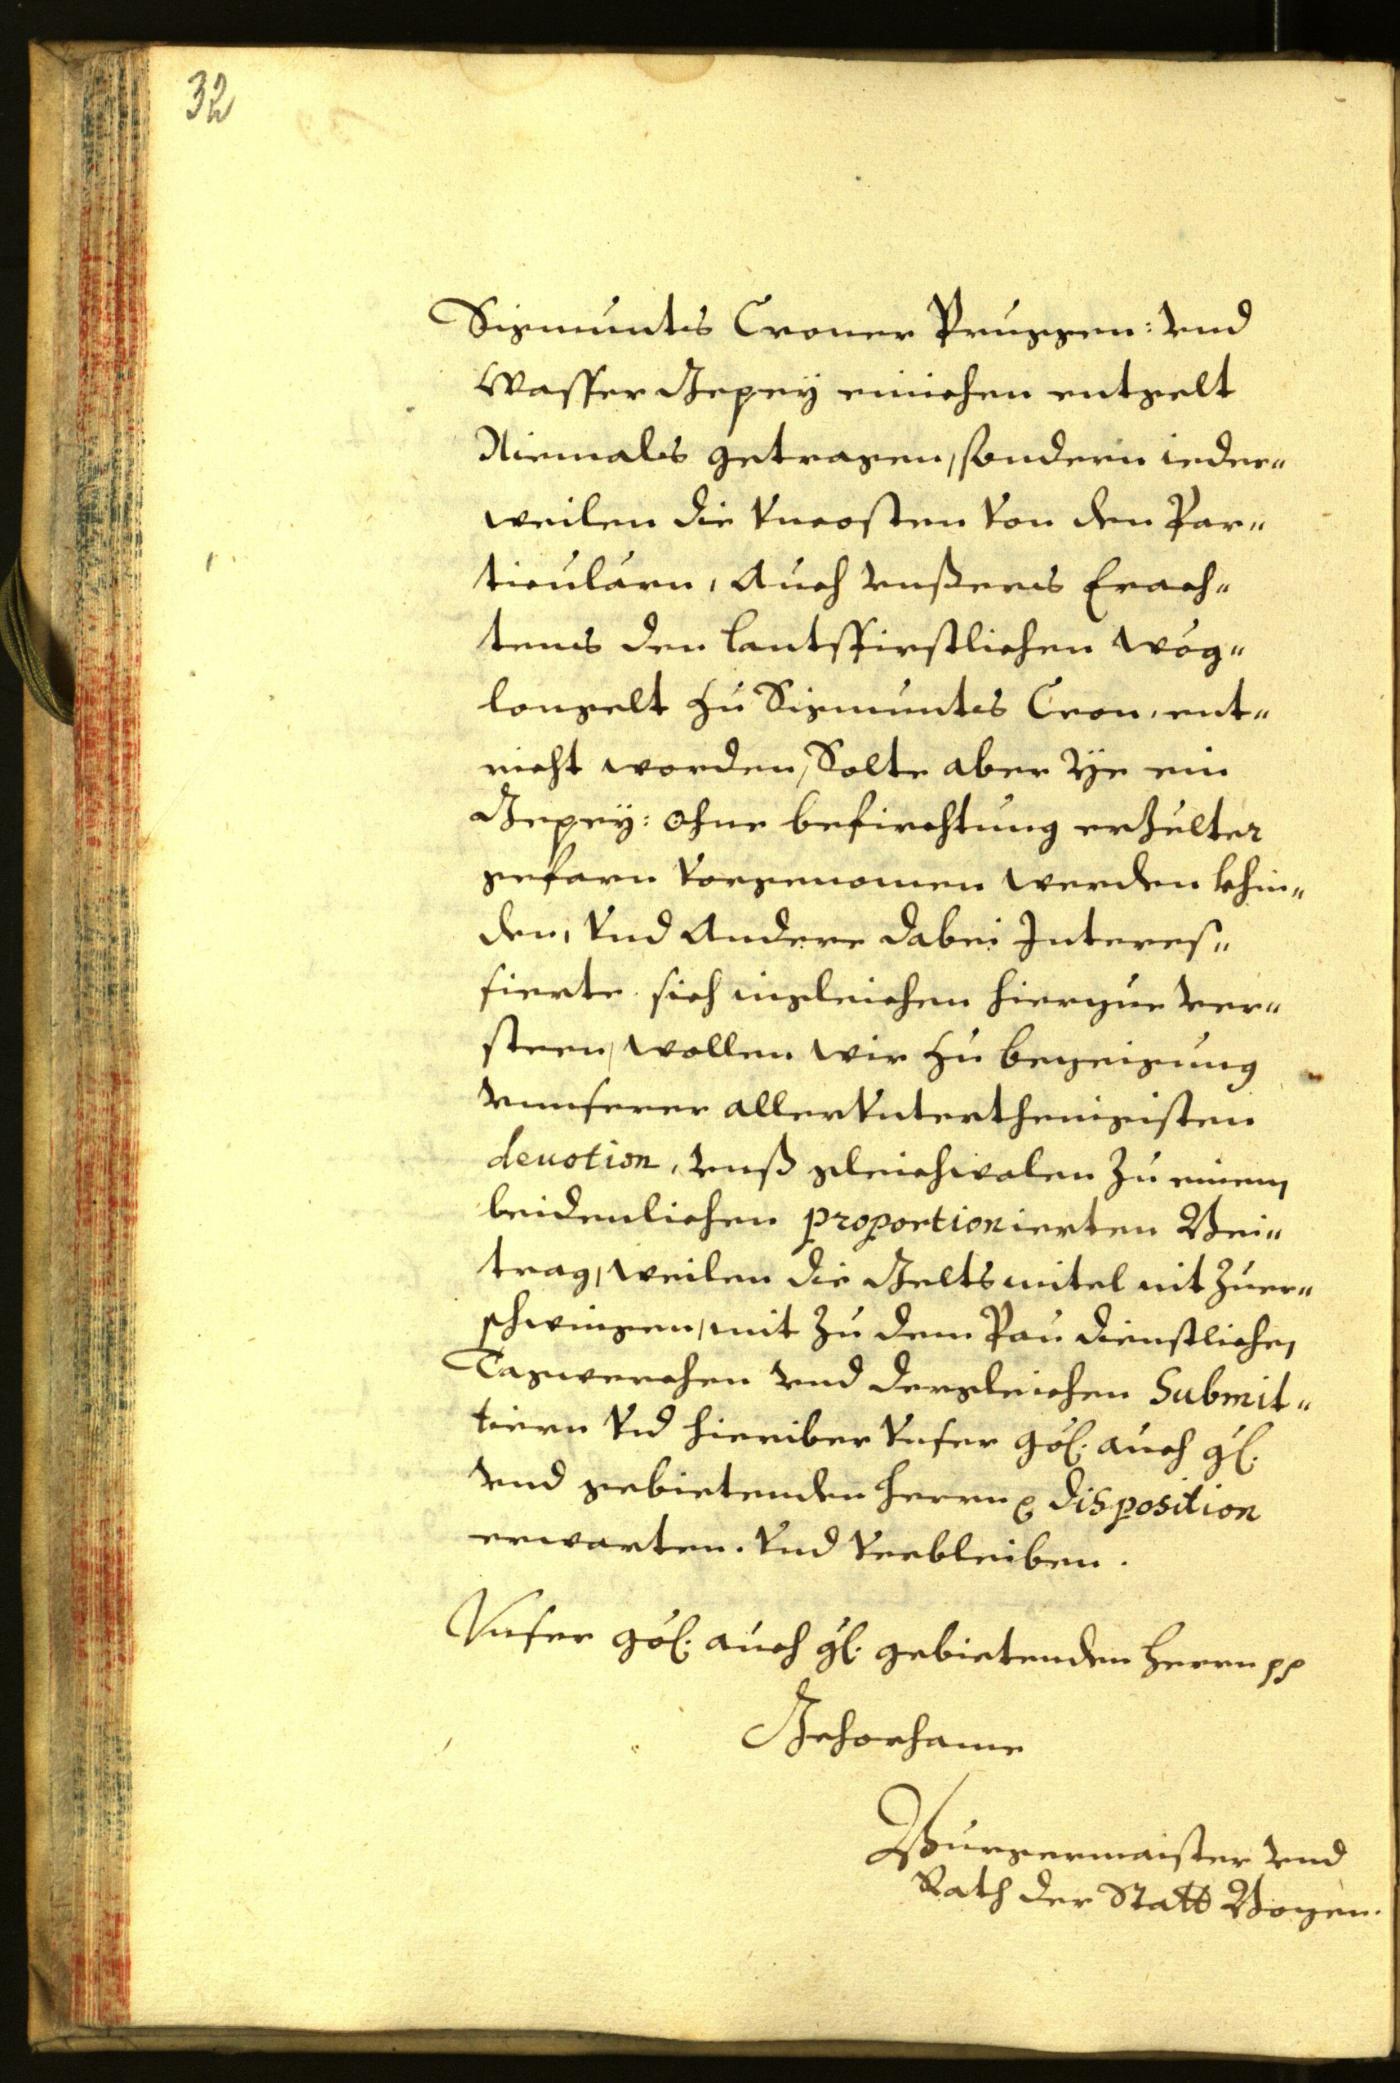 32
Sigmunts Croner Pruggen: vnd
Wasser Gepey einichen entgelt
Niemals getragen, sondern ieder-
weilen die Vncosten von den Par-
ticularn, auch vnßers Erach-
tens den lantsfirstlichen Wög-
longelt zu Sigmunts Cron, ent-
richt worden, Solte aber ÿe ein
Gepeÿ: ohne befirchtung erzelter
gefarn vorgenomen werden khin-
den, vnd Andere dabei Interes-
sierte sich ingleichen hierzue ver-
steen, wollen wir zu bezeigung
vnnserer allervnterthenigisten
deuotion, vnß gleichwolen zu einem
leidenlichen proportionierten Bei-
trag, weilen die Geltsmitel nit zuer-
schwingen, mit zu dem Pau dienstlichen
Tagwerchen vnd dergleichen Submit-
tiern vnd hieriber vnser göl: auch gl:
vnd gebietenden herrn disposition
erwarten. vnd verbleiben.
Vnser göl: auch gl: gebietenden herrn pp
Gehorsame
Burgermaister vnd
Rath der Statt Bozen.